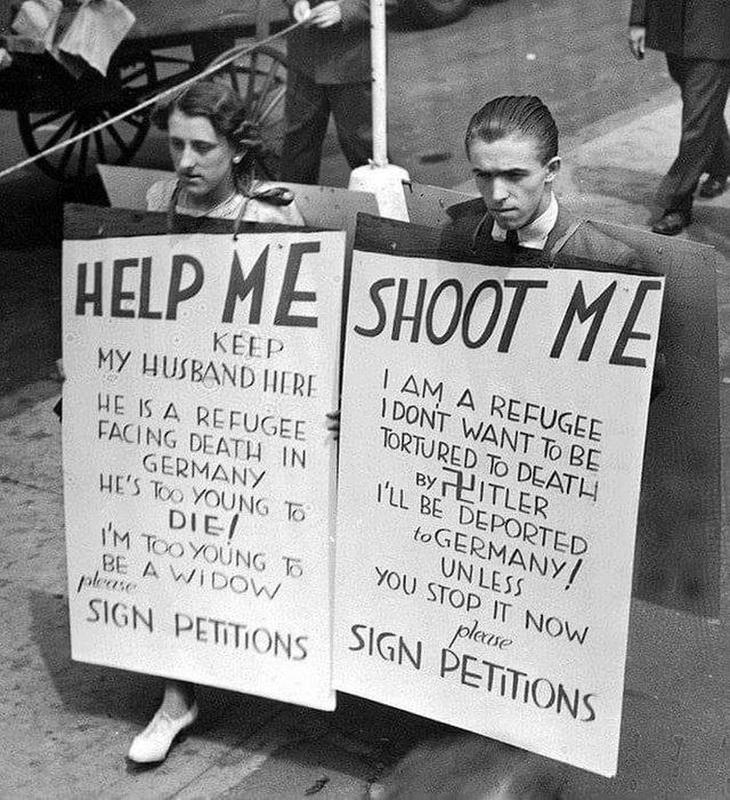 HELP ME
KEEP
MY HUSBAND HERE
HE IS A REFUGEE
FACING DEATH IN
GERMANY
HE'S TOO YOUNG TO
DIE!
I'M TOO YOUNG TO
BE A WIDOW
please
SIGN PETITIONS
SHOOT ME
I AM A REFUGEE
I DONT WANT TO BE
TORTURED TO DEATH
BY 卐ITLER
I'LL BE DEPORTED
to GERMANY!
UNLESS
YOU STOP IT NOW
please
SIGN PETITIONS